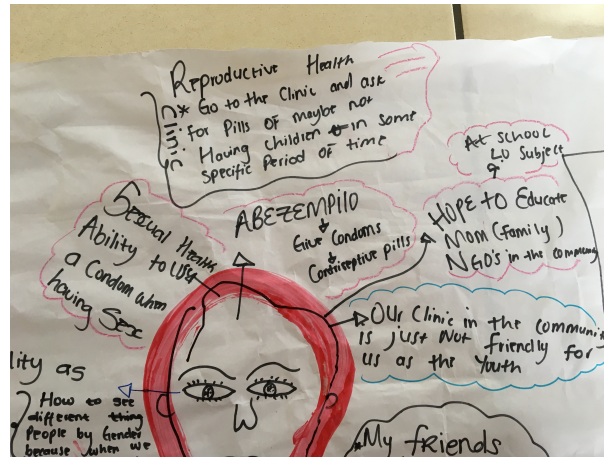 Reproductive Health
* Go to the Clinic and ask
for Pills of maybe not
Having Children in some
specific Period of time
Clinic
At School
L.O Subject
Sexual Health
Ability to use
a Condom when
having Sex
ABEZEMPILO
Give Condoms
Contriceptive pills
HOPE TO Educate
MOM (family)
NGO's in the community
OUr Clinic in the communit
is just Not friendly for
us as the Youth
lity as
How to see
different thing
People by Gender
because when we
*My friends